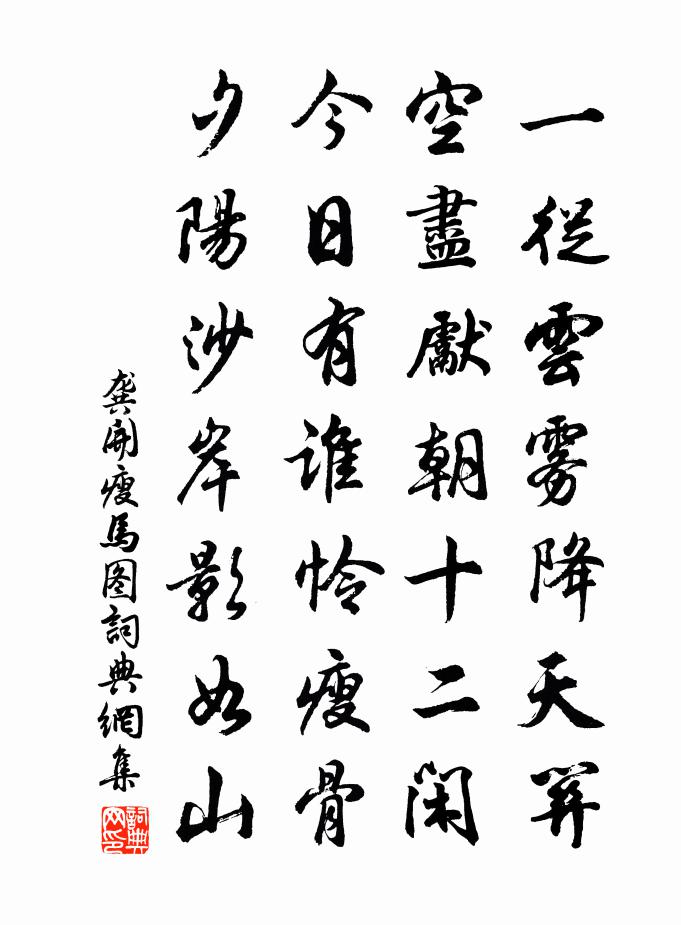 一從雲霧降天關
空盡獻朝十二閑
今日有誰憐瘦骨
夕陽沙岸影如山
龔開瘦馬图詞典網集
詞典网印